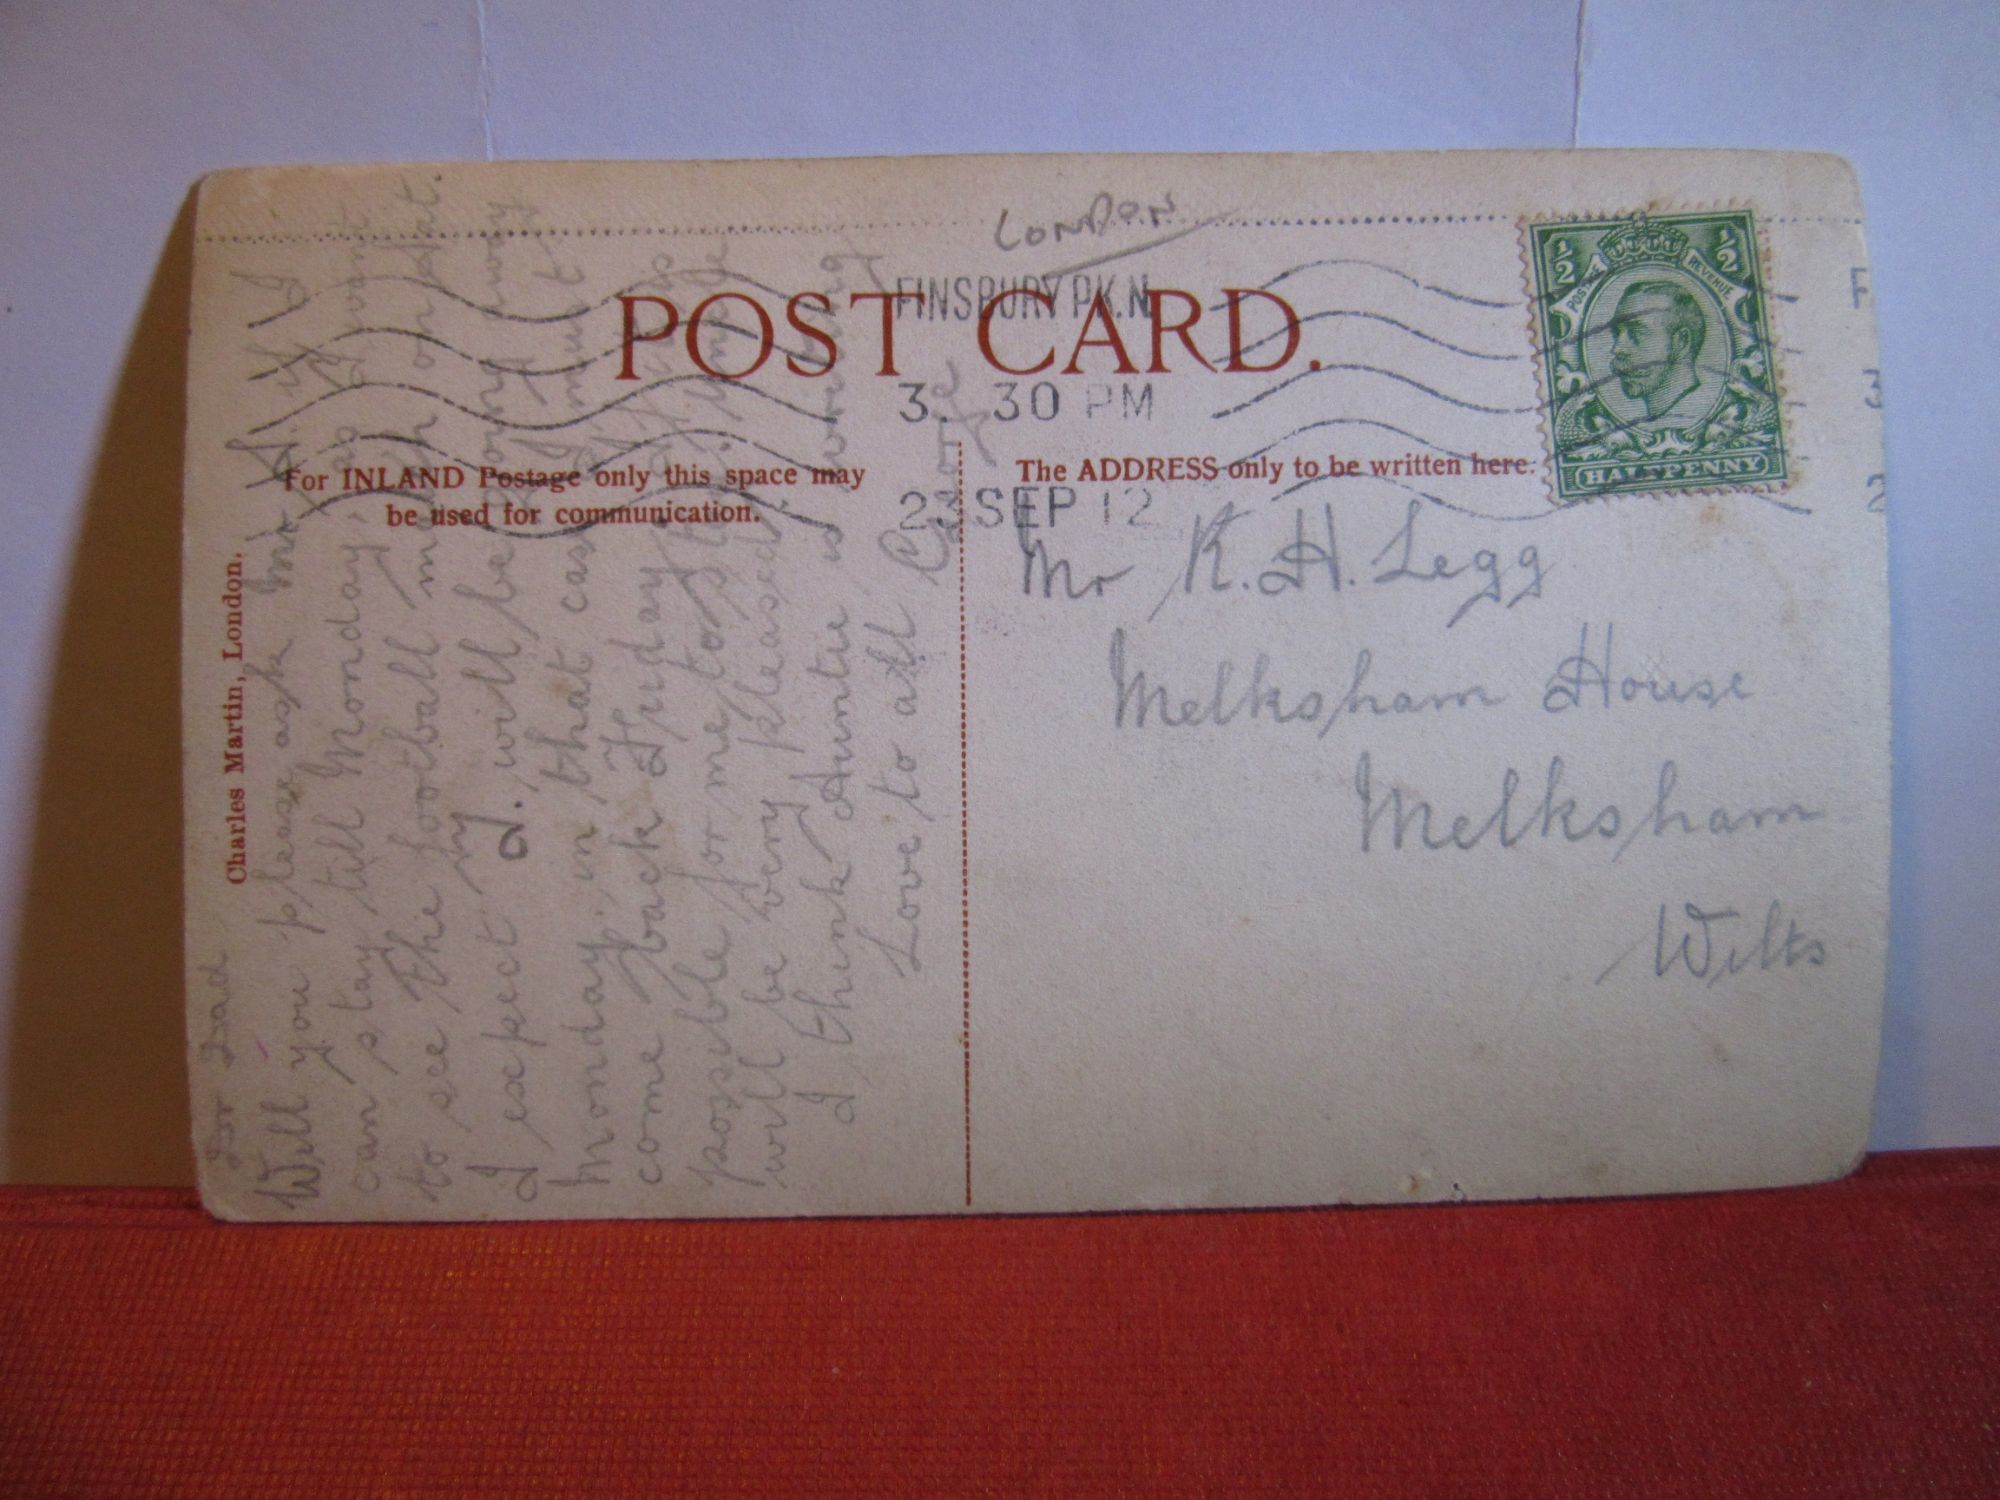 LONDON
FINSBURY PK. N.
POST CARD.
3. 30 PM
23 SEP 12
For INLAND Postage only this space may
be used for communication.
The ADDRESS only to be written here.
½ ½
POSTAGE REVENUE
HALFPENNY
F
3
2
Charles Martin, London.
Dad
Will you please ask Mr H. if I
can stay till Monday, as I want
to see the football match on Sat.
I expect I will be going away
Monday, in that case I must
come back Friday
possible for me to stop
will be very pleased.
I think Auntie is writing
Love to all George
Mr K. H. Legg
Melksham House
Melksham
Wilts